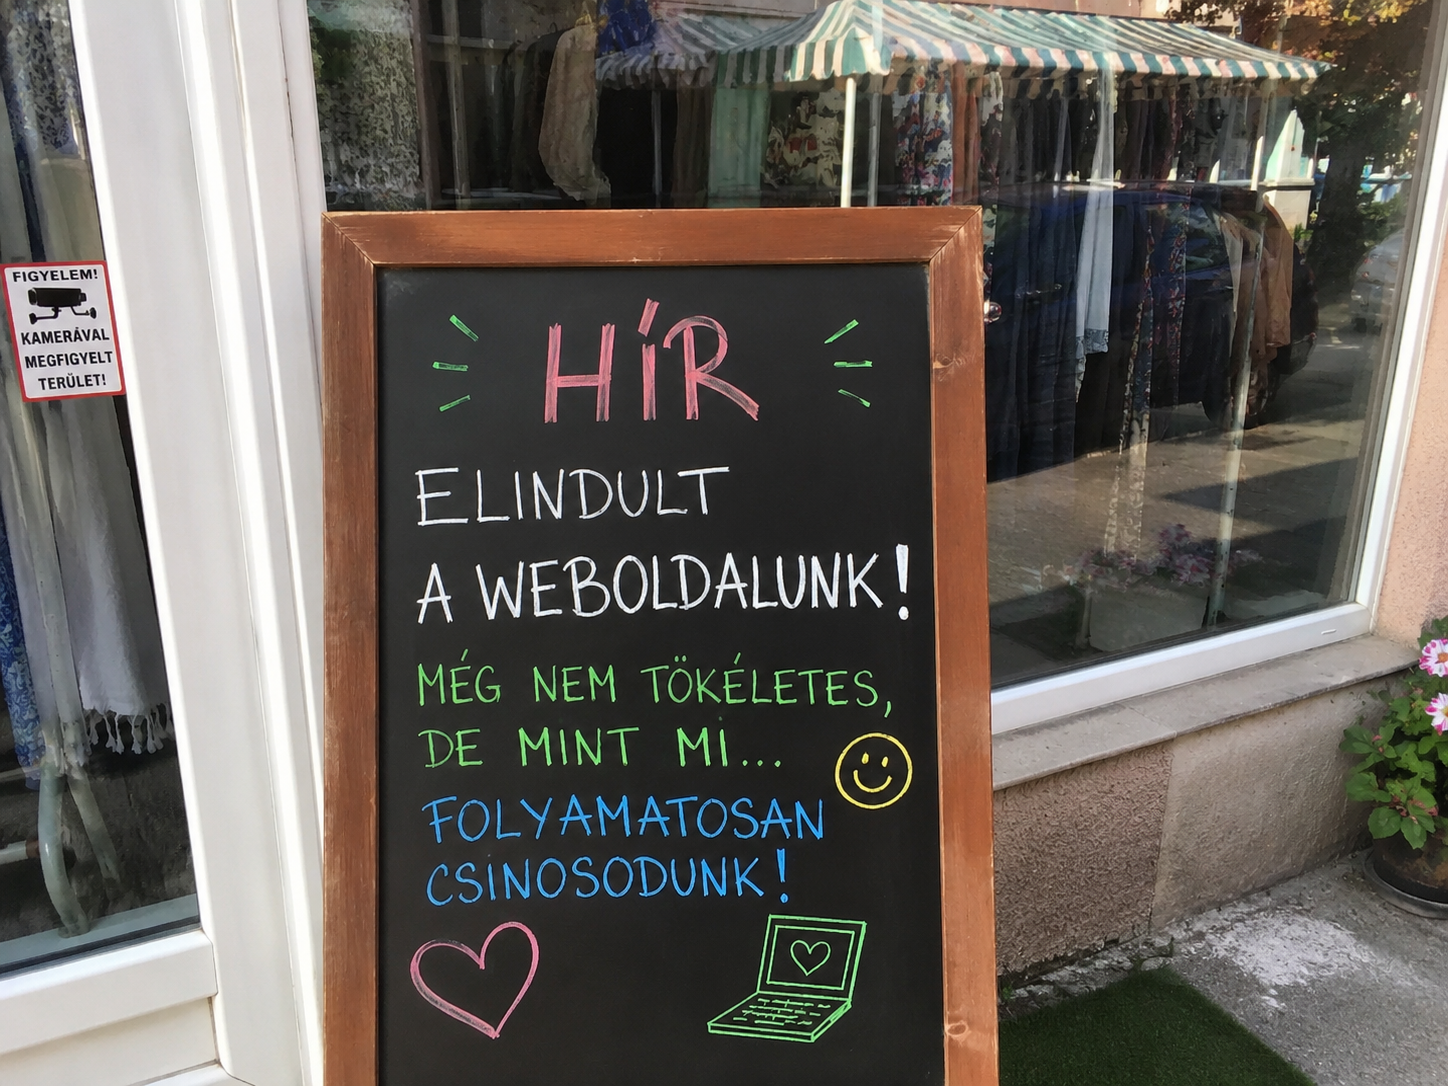 FIGYELEM!
KAMERÁVAL
MEGFIGYELT
TERÜLET!
HÍR
ELINDULT
A WEBOLDALUNK!
MÉG NEM TÖKÉLETES,
DE MINT MI...
FOLYAMATOSAN
CSINOSODUNK!